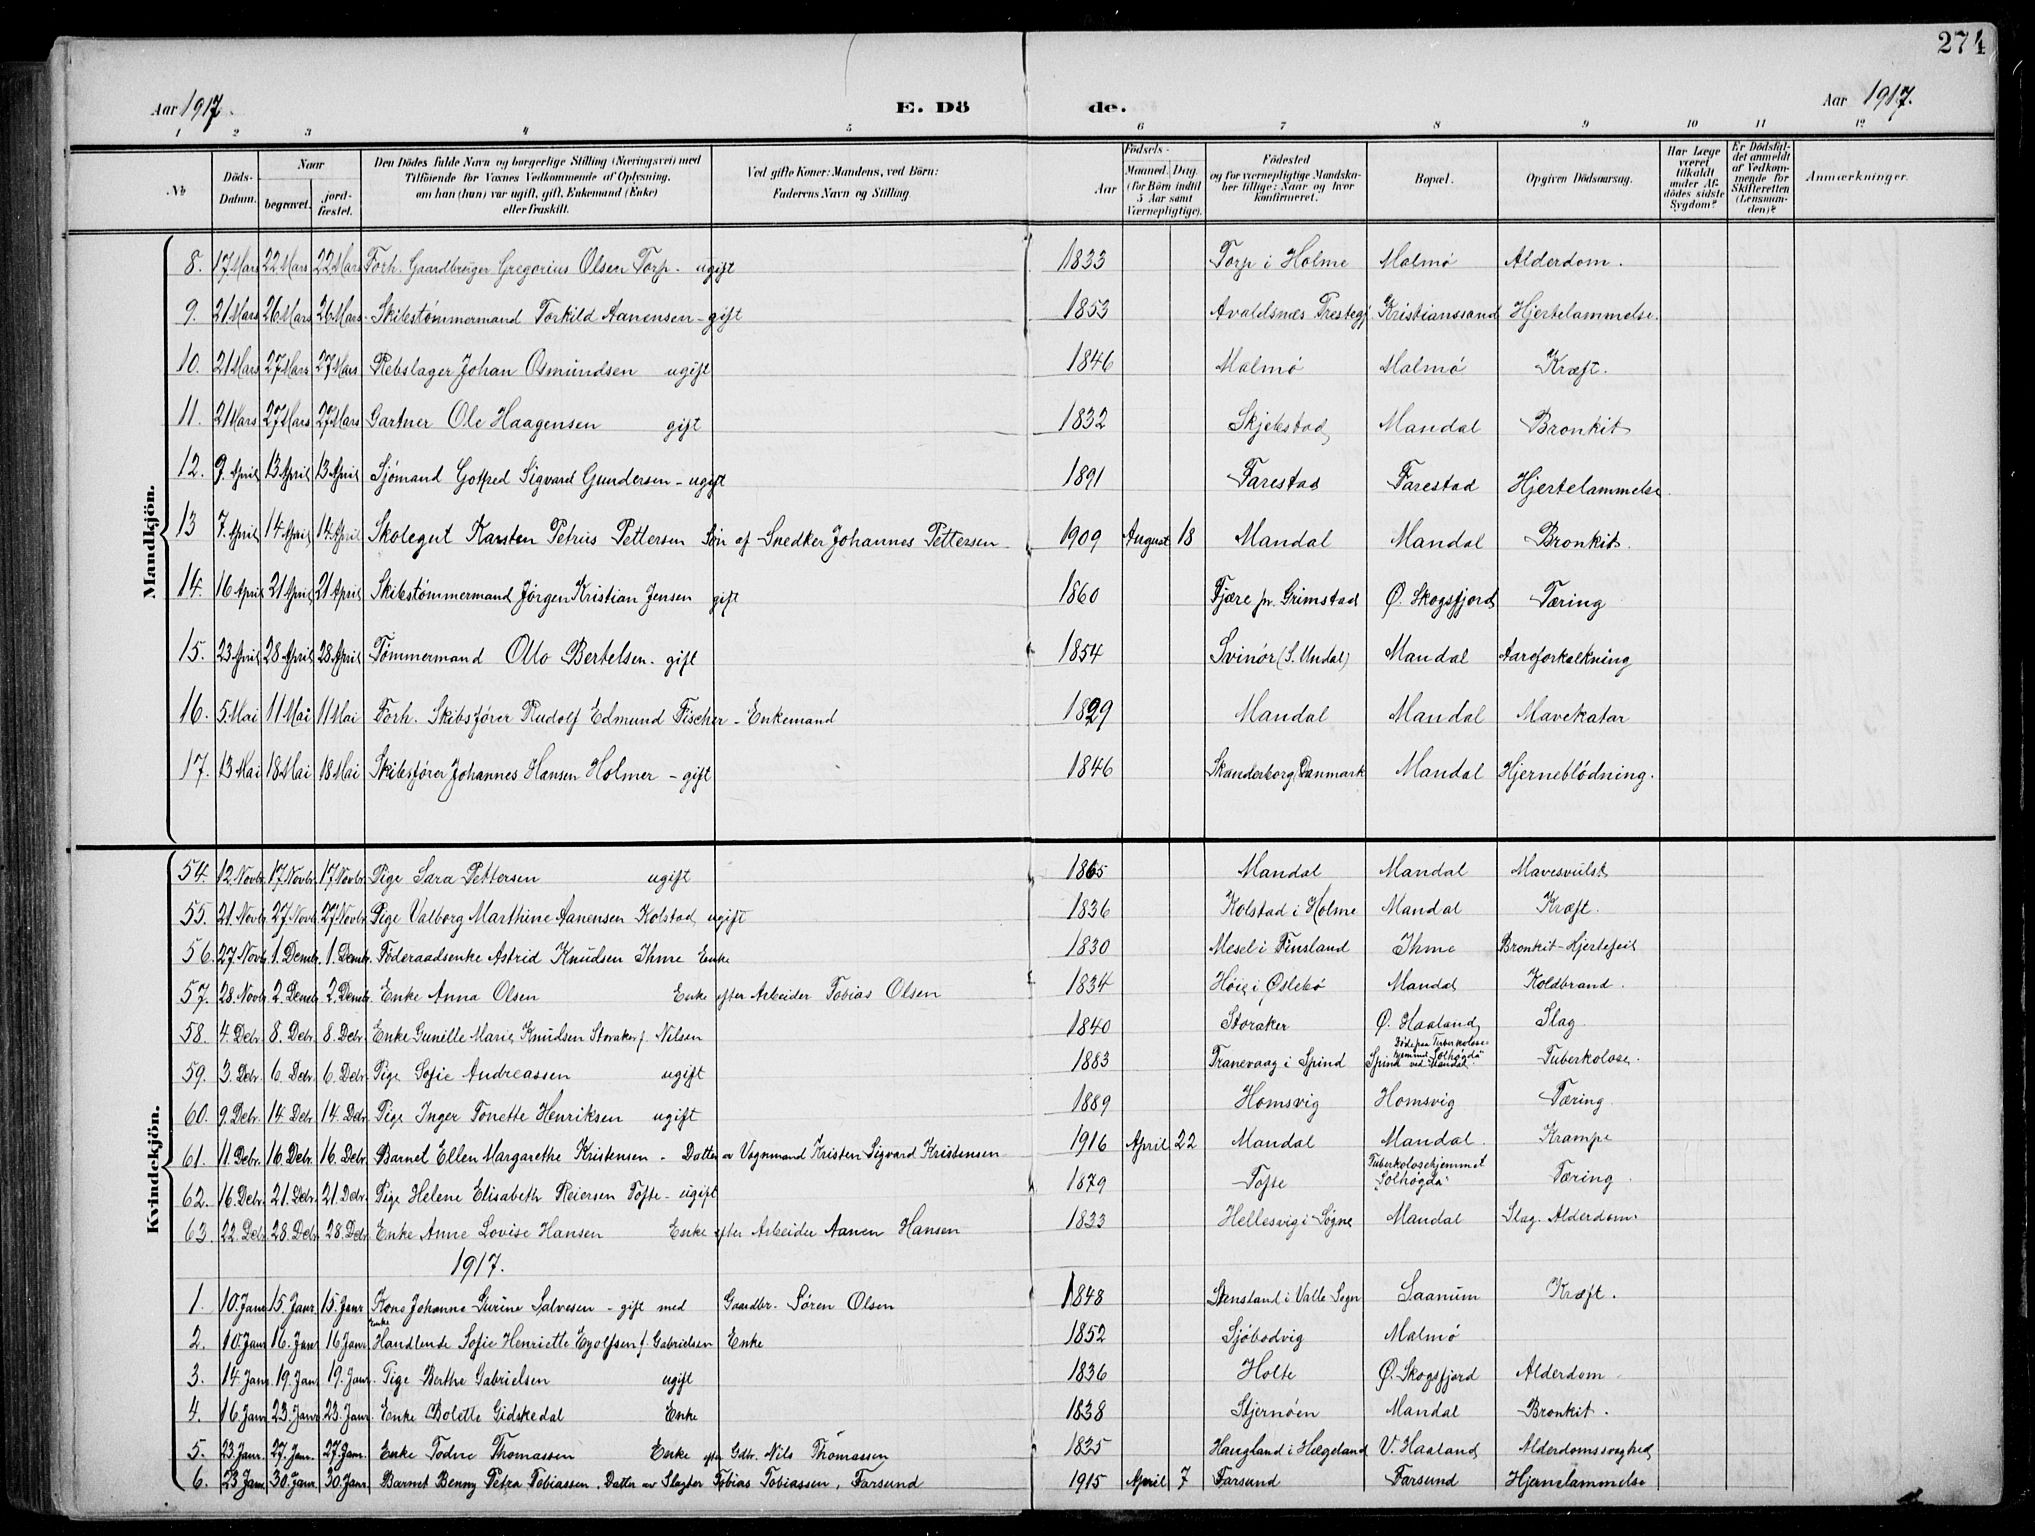 274
Aar 1917. E. Dö de. Aar 1917.
1 2 3 4 5 6 7 8 9 10 11 12
No | Döds-Datum. | Naar begravet. | jord-fæstet. | Den Dödes fulde Navn og borgerlige Stilling (Næringsvei) med Tilföiende for Voxnes Vedkommende af Oplysning, om han (hun) var ugift, gift, Enkemand (Enke) eller fraskilt. | Ved gifte Koner: Mandens, ved Börn: Faderens Navn og Stilling. | Födsels- Aar | Maaned. Dag. (for Börn indtil 5 Aar samt Værnepligtige). | Födested og for værnepligtige Mandskaber tillige: Naar og hvor konfirmeret. | Bopæl. | Opgiven Dödsaarsag. | Har Læge været tilkaldt under Afdödes sidste Sygdom? | Er Dödsfaldet anmeldt af Vedkommende for Skifteretten (Lensmanden)? | Anmærkninger.
Mandkjön.
8. 17 Mars 22 Mars 22 Mars Forh. Gaardbruger Gregorius Olsen Torp. ugift 1833 Torp i Holme Malmö Alderdom.
9. 21 Mars 26 Mars 26 Mars. Skibstømmermand Torkild Aanensen - gift 1853 Avaldsnes Prestegj. Kristianssand Hjertelammelse.
10. 21 Mars 27 Mars 27 Mars Rebslager Johan Osmundsen ugift 1846 Malmö Malmö Kræft.
11. 21 Mars 27 Mars 27 Mars Gartner Ole Haagensen gift 1832 Skjebstad Mandal Bronkit
12. 9. April 13 April 13 April Sjömand Gotfred Sigvard Gundersen - ugift 1891 Farestad Farestad Hjertelammelse.
13 7. April 14 April 14 April Skolegut Karsten Petrus Pettersen Søn af Snedker Johannes Pettersen 1909 August 18 Mandal Mandal Bronkit.
14. 16 April 21 April 21 April Skibstømmermand Jørgen Kristian Jensen gift 1860 Fjære pr. Grimstad Ø. Skogsfjord Tæring
15. 23 April 28 April 28 April Tømmermand Otto Bertelsen. gift 1854 Svinör (S. Undal) Mandal Aareforkalkning
16. 5. Mai 11 Mai 11 Mai Forh. Skibsfører Rudolf Edmund Fischer - Enkemand 1829 Mandal Mandal Mavekatar
17. 13 Mai 18 Mai 18 Mai Skibsfører Johannes Hansen Holmer - gift 1846 Skanderborg, Danmark Mandal Hjerneblödning.
Kvindekjön.
54. 12 Novbr. 17 Novbr. 17 Novbr. Pige Sara Pettersen ugift 1865 Mandal Mandal Mavesvulst
55. 21. Novbr. 27 Novb. 27 Novbr. Pige Valborg Marthine Aanensen Kolstad ugift 1836 Kolstad i Holme Mandal Kræft.
56. 27 Novb. 1. Dembr. 1. Dembr. Føderaadsenke Astrid Knudsen Ihme Enke 1830 Mesel i Finsland Ihme Bronkit - Hjertefeil
57. 28. Novb. 2. Demb. 2 Demb. Enke Anna Olsen Enke efter Arbeider Tobias Olsen 1834 Höie i Öslebö Mandal Koldbrand.
58. 4. Debr. 8. Debr. 8 Debr. Enke Gunille Marie Knudsen Storaker f. Nilsen 1840 Storaker Ø. Haaland Slag
59. 3. Debr. 6. Debr. 6. Debr. Pige Sofie Andreassen ugift 1883 Tranevaag i Spind Spind Døde paa Tuberkolosehjemmet "Solhøgda" ved Mandal Tuberkolose.
60. 9. Debr. 14. Debr 14. Debr. Pige Inger Tonette Henriksen ugift 1889 Homsvig Homsvig Tæring.
61. 11. Debr. 16. Debr. 16. Debr. Barnet Ellen Margarethe Kristensen - Datter av Vognmand Kristen Sigvard Kristensen 1916 April 22 Mandal Mandal. Krampe
62. 16. Debr. 21. Debr. 21. Debr. Pige Helene Elisabeth Reiersen Tofte - ugift 1879 Tofte Tuberkolosehjemmet "Solhøgda" Tæring.
63. 22. Debr 28. Debr. 28. Debr. Enke Anne Lovise Hansen Enke efter Arbeider Aanen Hansen 1833 Hellesvig i Søgne Mandal Slag. Alderdom.
1917.
1. 10. Janr 15. Janr. 15. Janr Kone Johanne Gurine Salvesen - gift med Gaardbr. Søren Olsen 1848 Stensland i Valle Sogn Saanum Kræft.
2. 10. Janr 16. Janr 16 Janr Enke Handlende Sofie Henriette Eyolfsen f. Gabrielsen Enke 1852 Sjöbodvig Malmö
3. 14. Janr 19. Janr 19. Janr. Pige Berthe Gabrielsen ugift 1836 Holte Ø. Skogsfjord Alderdom
4. 16 Janr 23. Janr 23. Janr. Enke Bolette Gidskedal Enke 1838 Stjernöen Mandal Bronkit.
5. 23. Janr. 27. Janr. 27. Janr. Enke Todne Thomassen Enke efter Gdbr. Nils Thomassen 1835 Haugland i Hægeland V. Haaland Alderdomssvaghed
6. 23 Janr 30. Janr. 30. Janr. Barnet Benny Petra Tobiassen. Datter av Slagter Tobias Tobiassen, Farsund 1915 April 7 Farsund Farsund Hjernelammelse